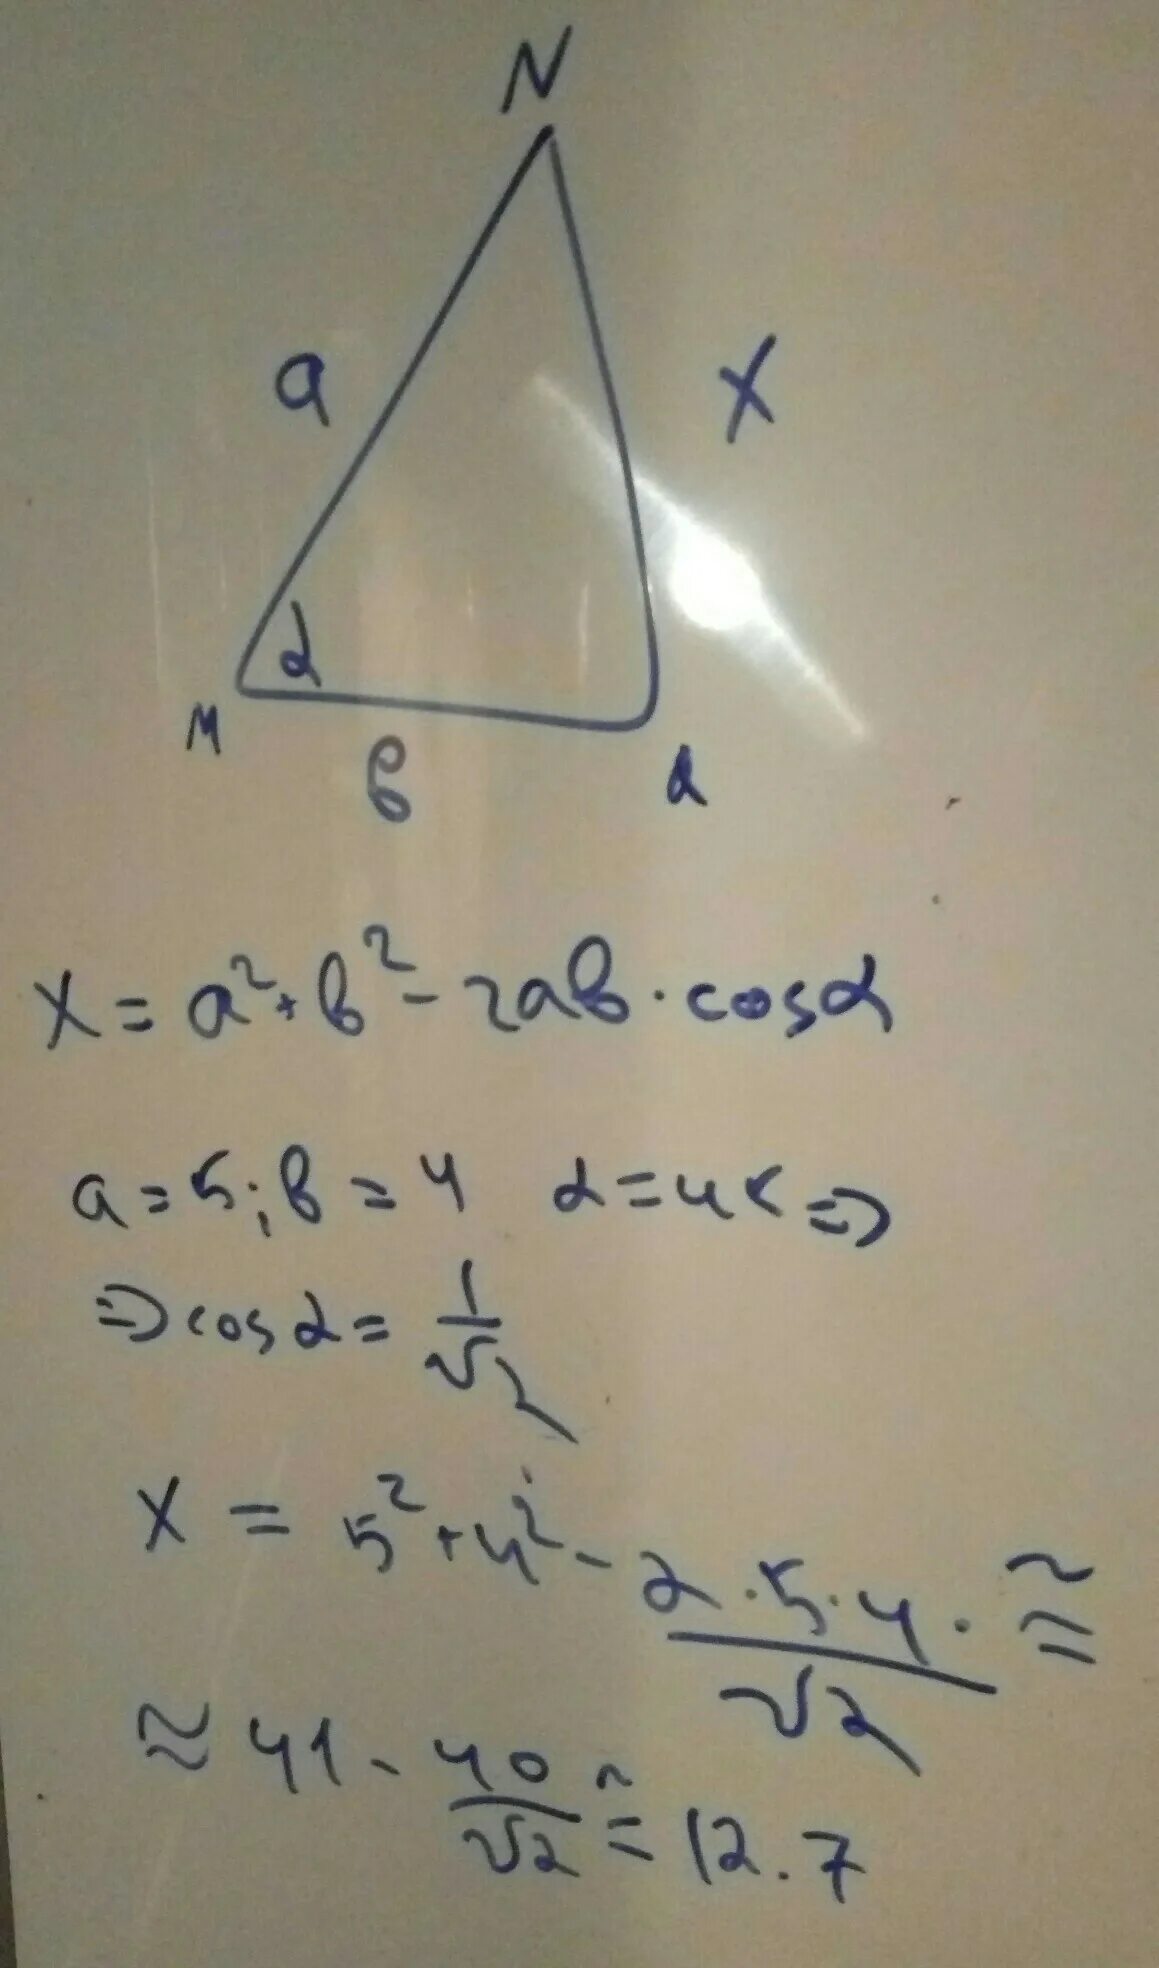 N
a
X
α
M
в
L
X = a² + в² - 2aв · cosα
a = 5; в = 4 α = 45 =>
=> cosα = 1/√2
X = 5² + 4² - 2·5·4·/√2 ≅
≈ 41 - 40/√2 ≅ 12.7